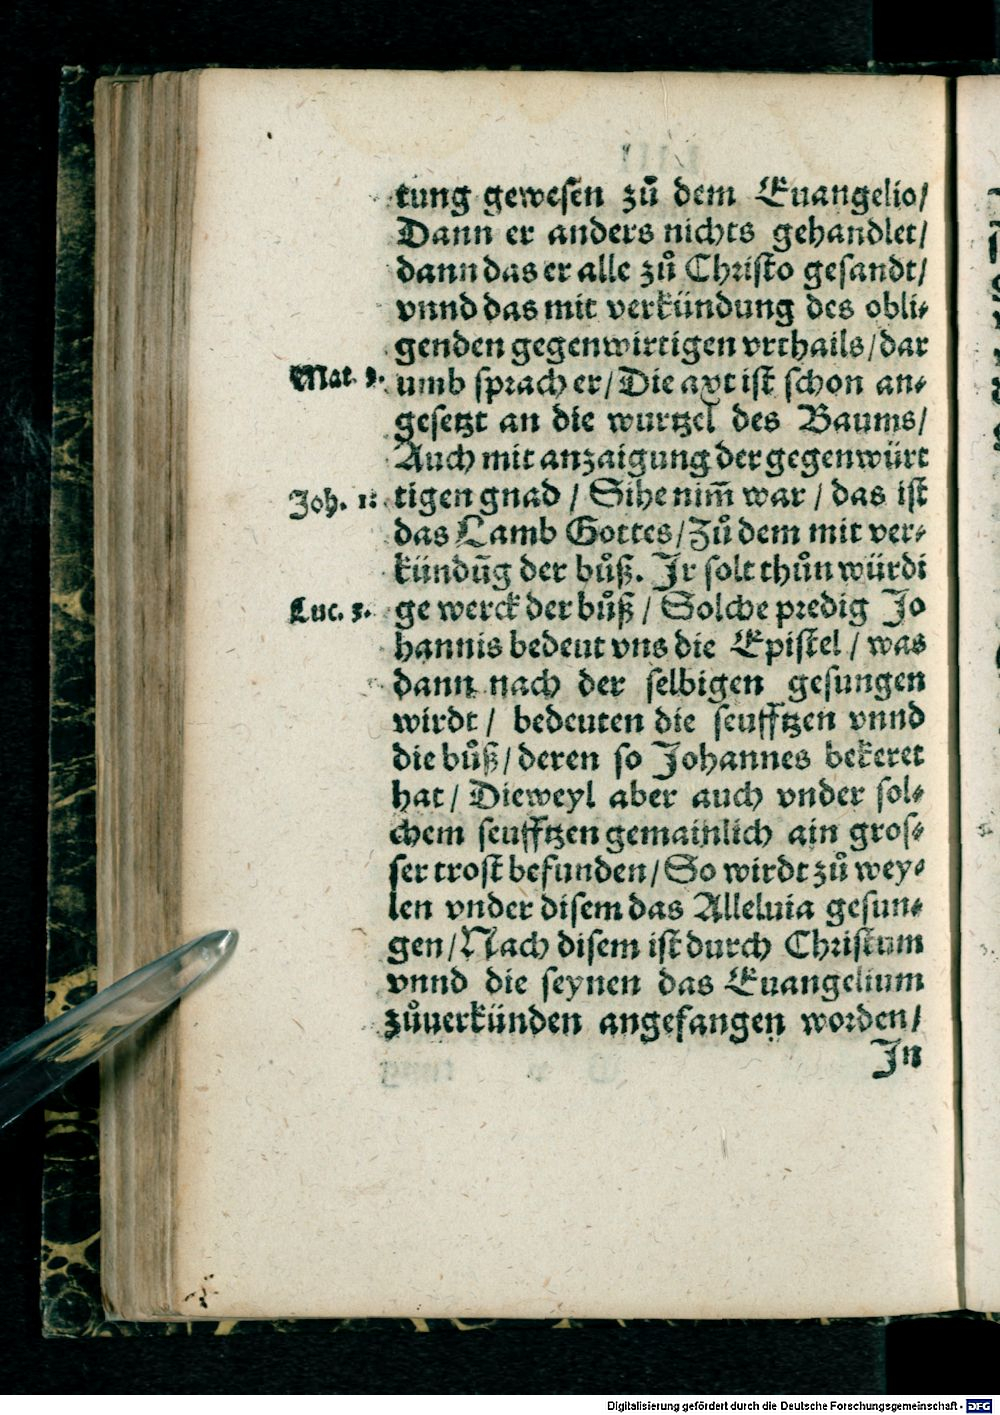 tung geweſen zuͦ dem Euangelio/
Dann er anders nichts gehandlet/
dann das er alle zuͦ Chriſto geſandt/
vnnd das mit verkündung des obli⸗
genden gegenwirtigen vrthails/dar
Mat. 3. umb ſprach er/Die axt iſt ſchon an⸗
geſetzt an die wurtzel des Baums/
Auch mit anzaigung der gegenwürt
Joh. 1. tigen gnad / Sihe nim̃ war / das iſt
das Lamb Gottes/Zuͦ dem mit ver⸗
kündũg der buͦß. Jr ſolt thuͦn würdi
Luc. 3. ge werck der buͦß / Solche predig Jo
hannis bedeut vns die Epiſtel / was
dann nach der ſelbigen geſungen
wirdt / bedeuten die ſeufftzen vnnd
die buͦß/deren ſo Johannes bekeret
hat / Dieweyl aber auch vnder ſol⸗
chem ſeufftzen gemainlich ain groſ⸗
ſer troſt befunden/So wirdt zuͦ wey⸗
len vnder diſem das Alleluia geſun⸗
gen/Nach diſem iſt durch Chriſtum
vnnd die ſeynen das Euangelium
zuͦuerkünden angefangen worden/
Jn
Digitalisierung gefördert durch die Deutsche Forschungsgemeinschaft - DFG